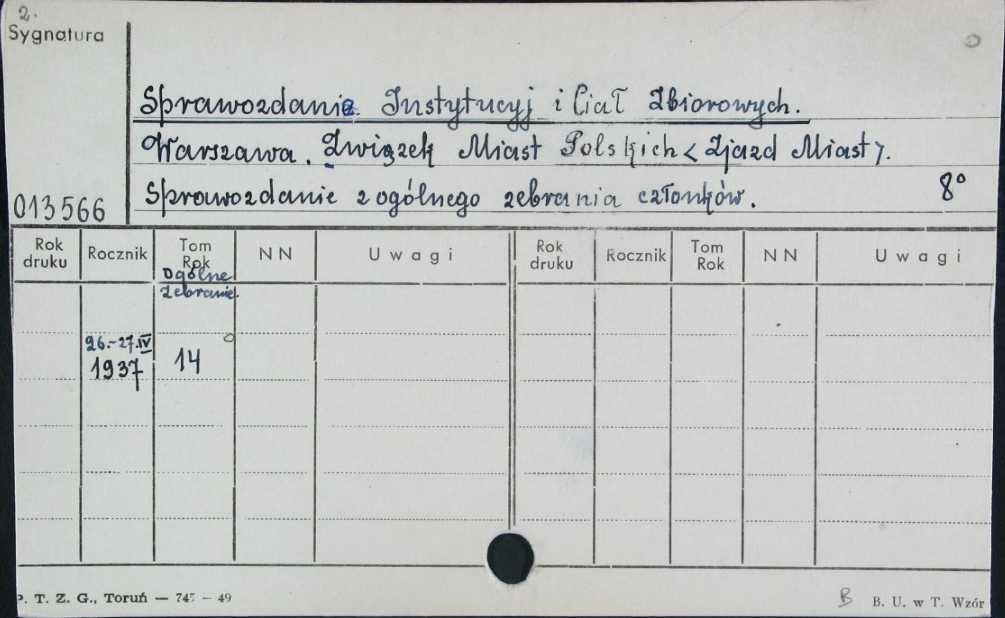 2.
Sygnatura
Sprawozdanie Instytucyj i Ciał Zbiorowych.
Warszawa. Związek Miast Polskich < Zjazd Miast >.
Sprawozdanie z ogólnego zebrania członków. 8°
013566
Rok druku Rocznik Tom Rok NN Uwagi Rok druku Rocznik Tom Rok NN Uwagi
Ogólne
Zebranie.
26.-27.IV
1937 14
P. T. Z. G., Toruń — 745 — 49
B B. U. w T. Wzór